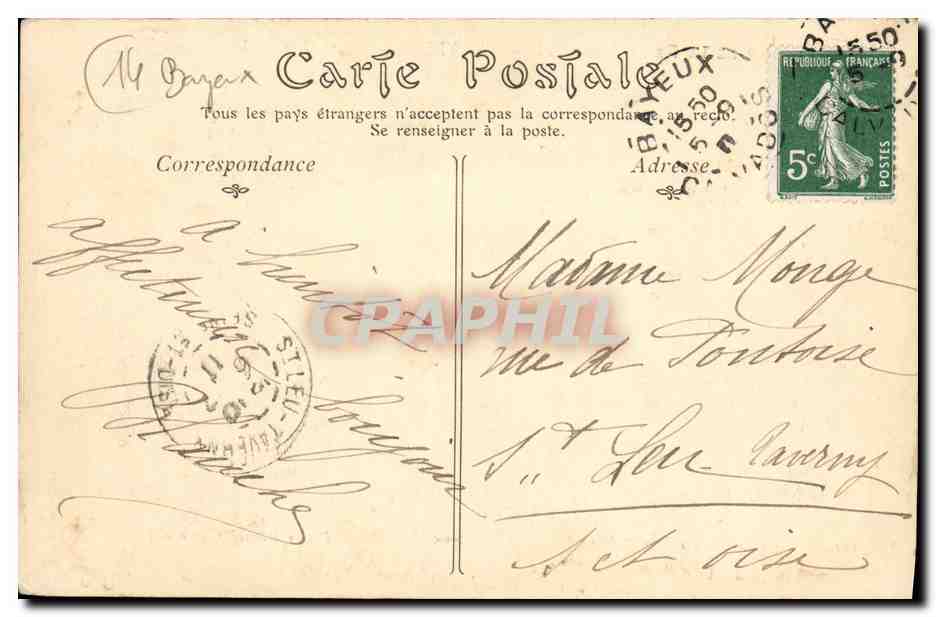 14 Bayeux
Carte Postale
Tous les pays étrangers n'acceptent pas la correspondance au recto.
Se renseigner à la poste.
Correspondance
Adresse
BAYEUX
15 50
5 - 9
CALVADOS
BA
15 50
5 9
CALV
REPUBLIQUE FRANÇAISE
5c
POSTES
affectueux
bonjour
ST LEU-TAVERNY
Madame Monge
rue de Pontoise
St Leu-Taverny
S et Oise
CPAPHIL